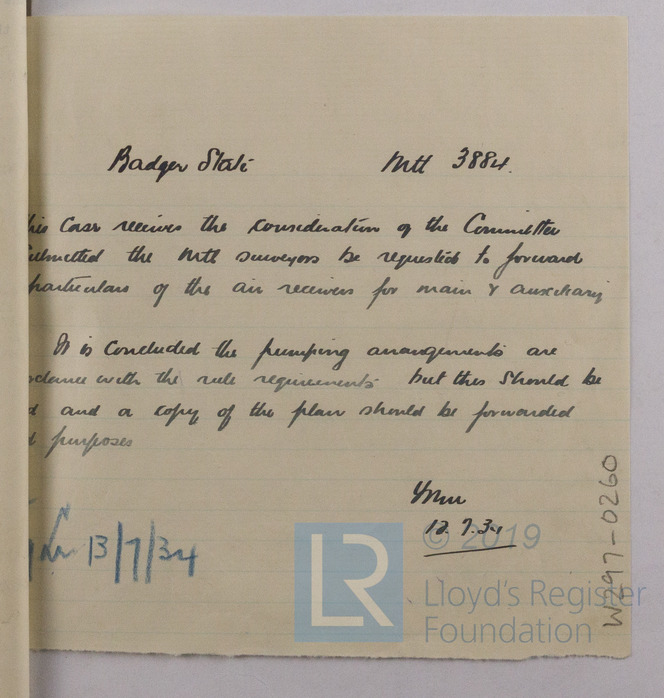 Badger State Mtl 3884.
his Case receives the consideration of the Committee
submitted the Mtl surveyors be requested to forward
particulars of the air receivers for main & auxiliary
It is concluded the pumping arrangements are
rdance with the rule requirements but this should be
d and a copy of the plan should be forwarded
d purposes
12.7.34
13/7/34
© 2019
LR
Lloyd's Register
Foundation
W297-0260